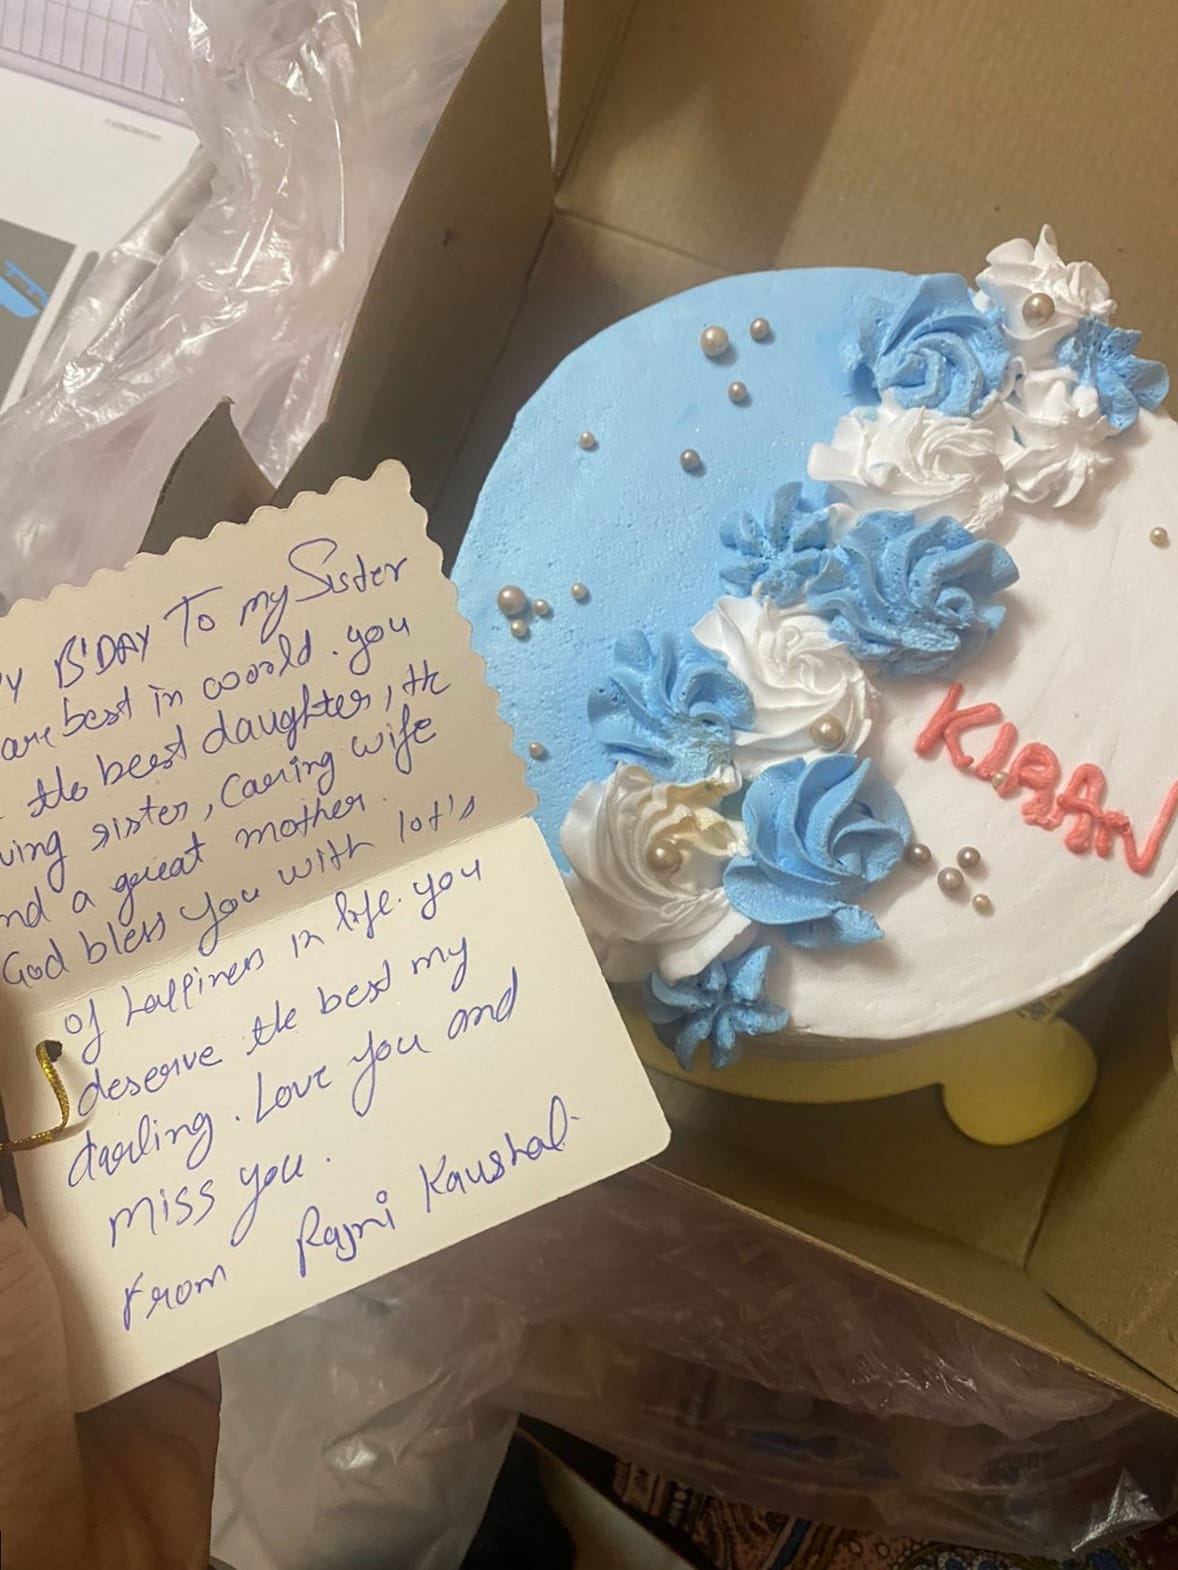 B'DAY To my Sister
are best in woorld. you
the beest daughter, the
ving sister, Caering wife
nd a great mother.
God bless you with lot's
of happiness in life. you
deserve the best my
darling. Love you and
miss you.
From Rajni Kaushal.
KIRAN